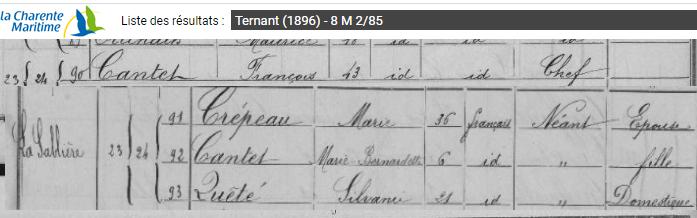 la Charente
Maritime
Liste des résultats : Ternant (1896) - 8 M 2/85
Maurice id id
23 24 90 Cantet François 43 id id Chef
91 Crépeau Marie 36 français Néant Epouse
La Sablière 23 24 92 Cantet Marie-Bernadette 6 id " fille
93 Quêté Silvanie 21 id " Domestique